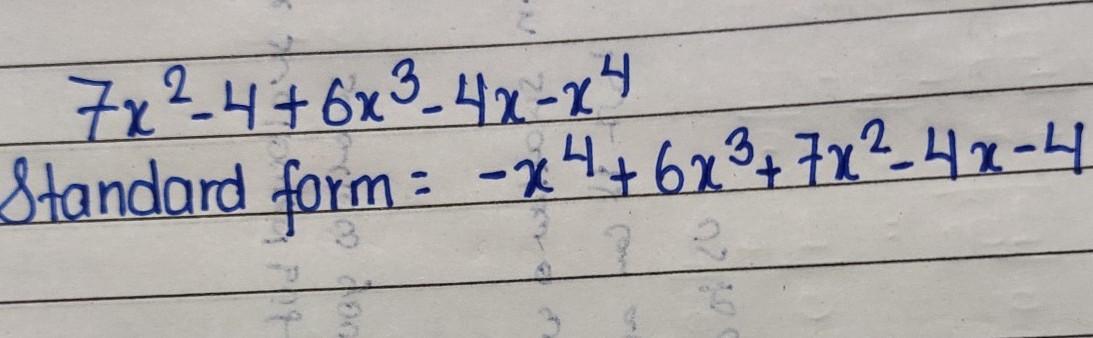 7x²-4+6x³-4x-x⁴
Standard form = -x⁴+6x³+7x²-4x-4